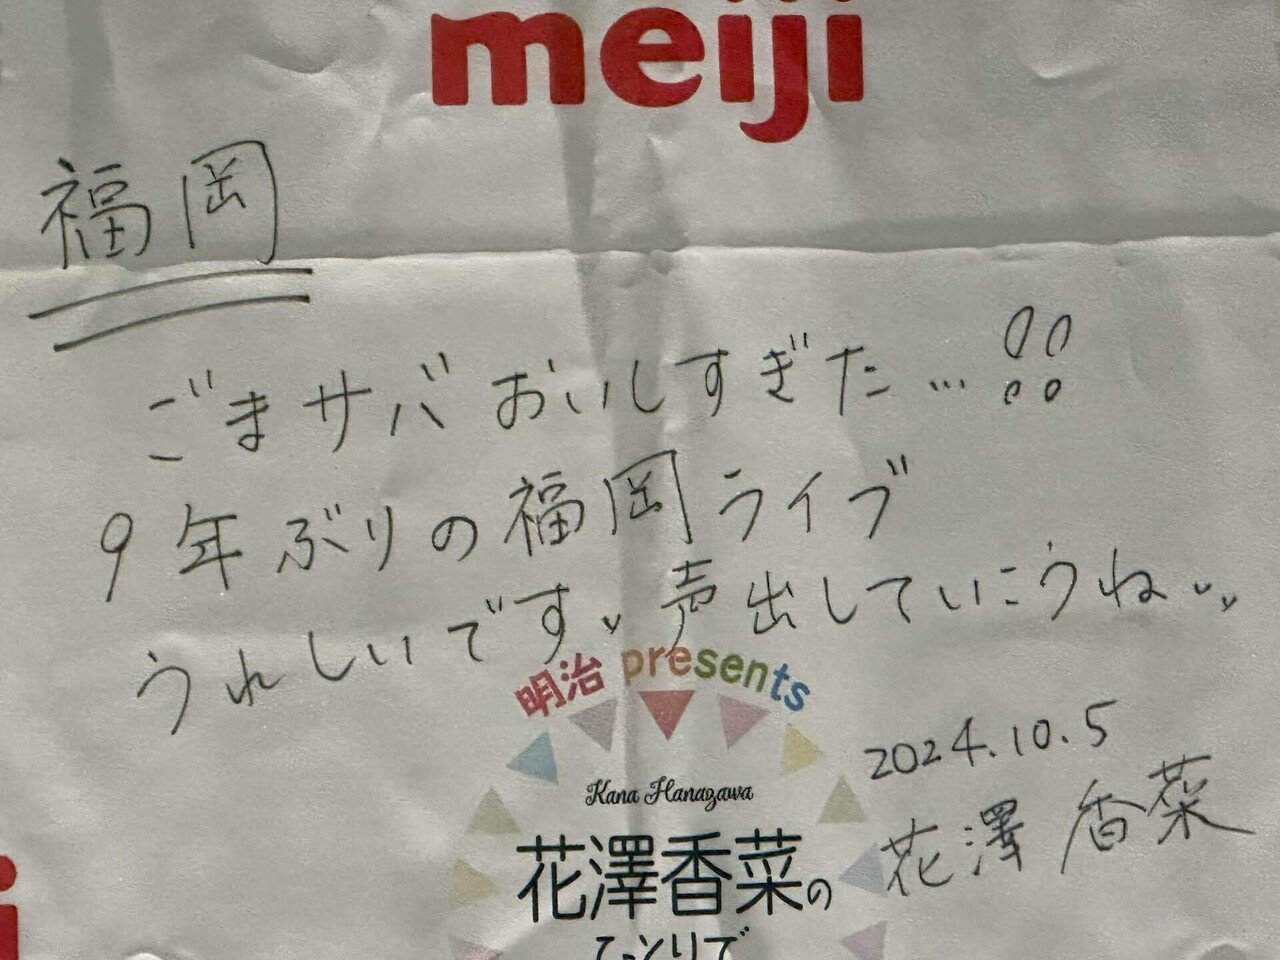 meiji
福岡
ごまサバおいしすぎた…!!
9年ぶりの福岡ライブ
うれしいです。声出していこうね
明治 presents
2024.10.5
Kana Hanazawa
花澤香菜
花澤香菜の
ひとりで